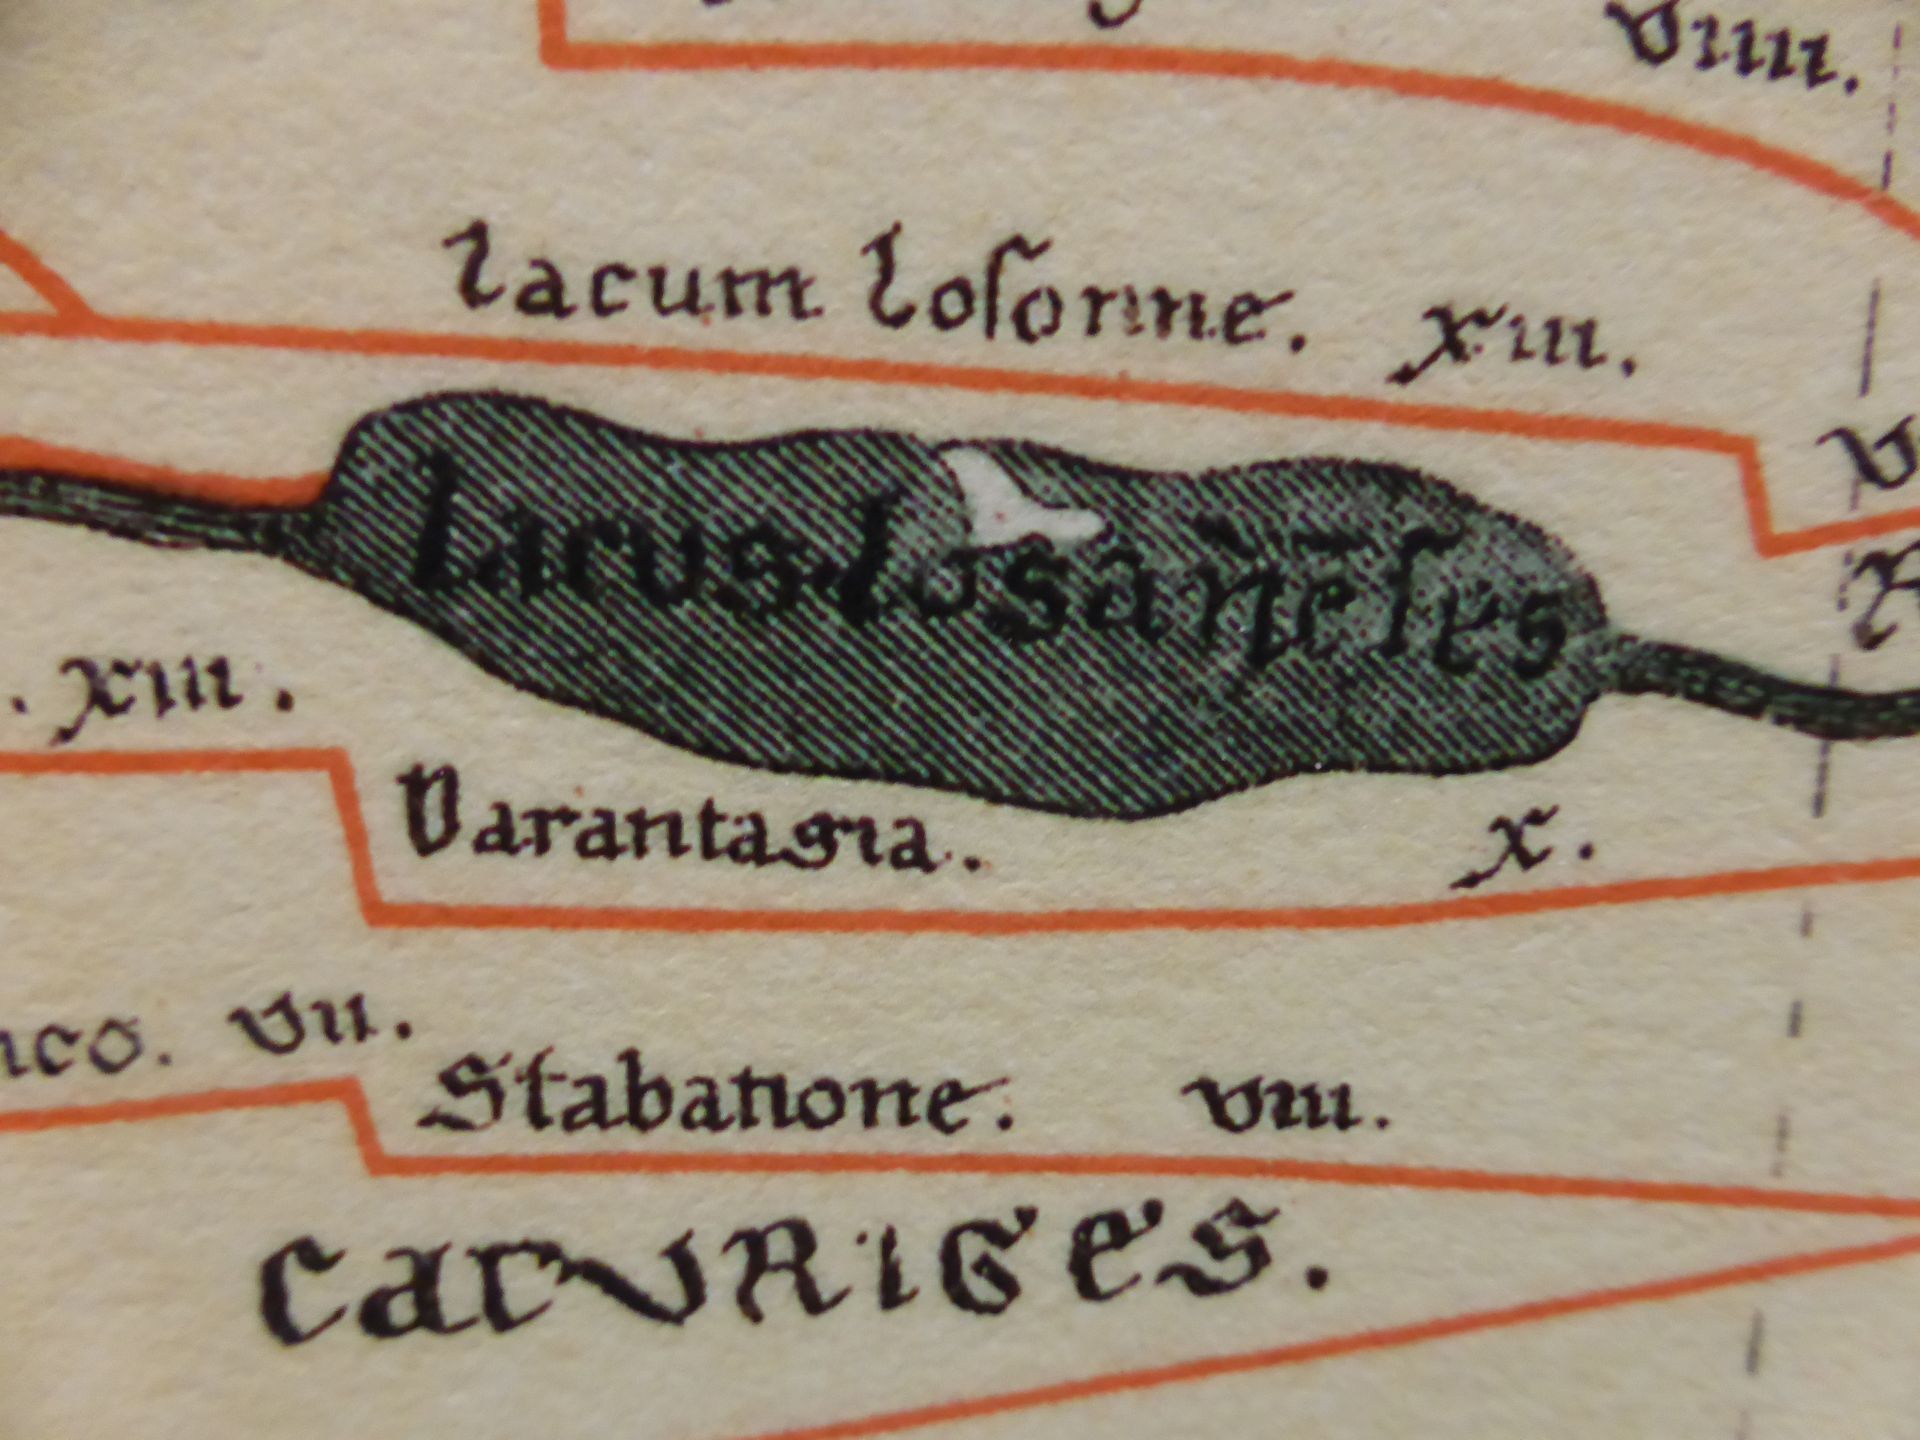 viiii.
lacum loſonne. xiii.
lacus losanēſes
. xiii.
Darantasia. x.
nco. vii.
Stabatione. viii.
CATVRIGES.